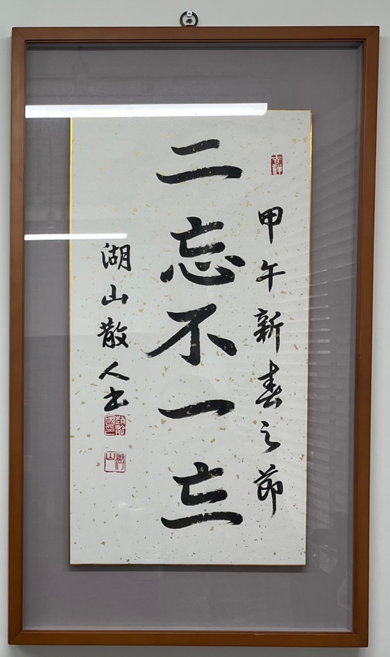 甲午新春之節
二忘不一亡
湖山散人書